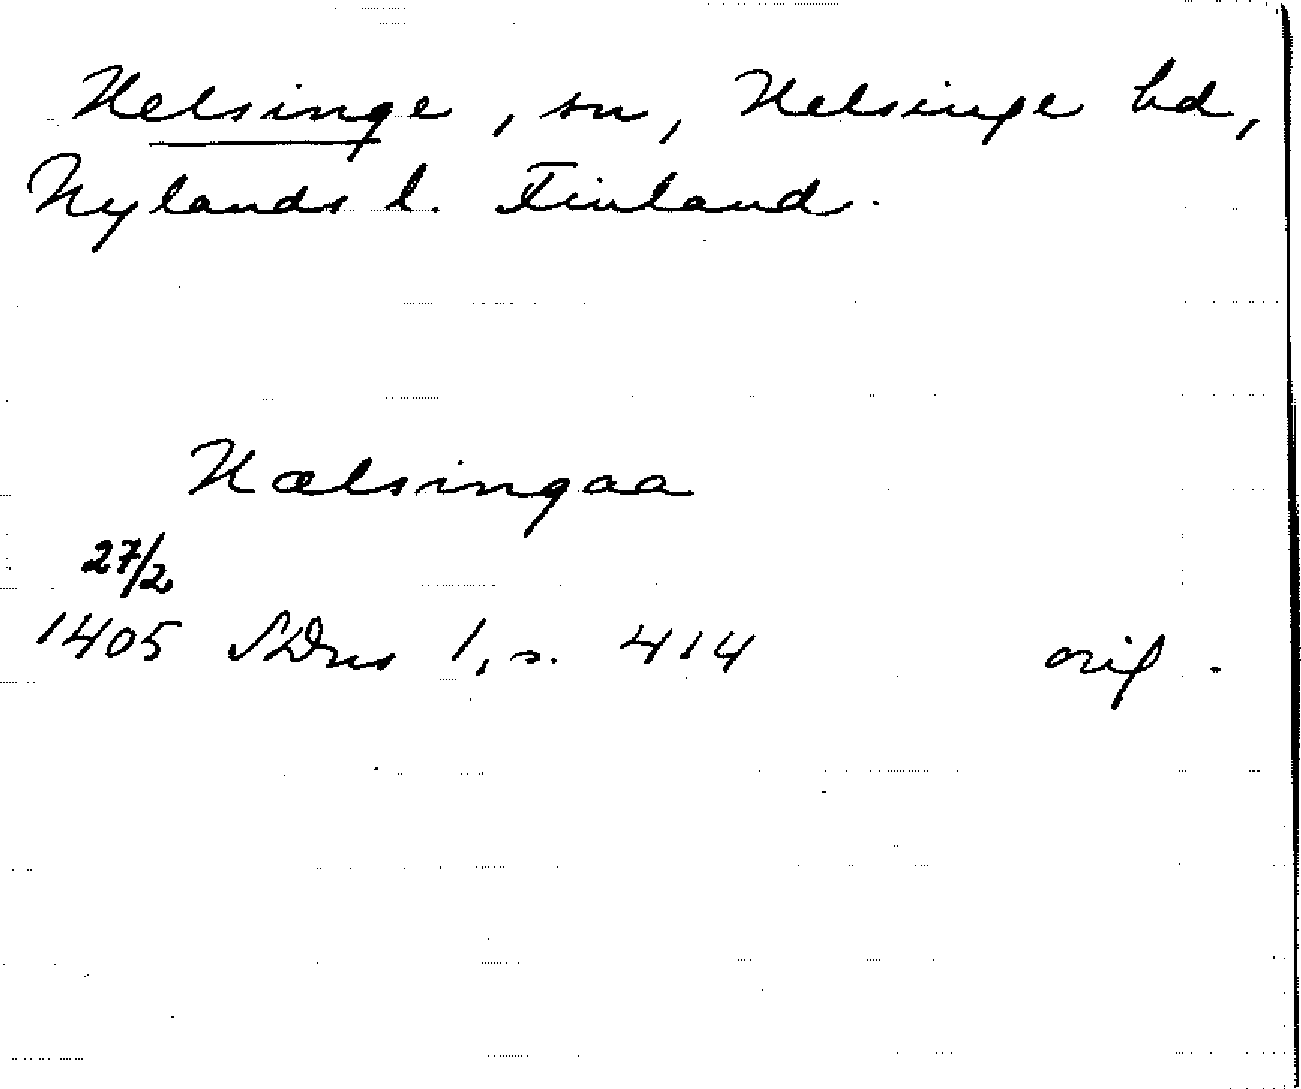 Helsinge, sn, Helsinge hd,
Nylands l. Finland.
Hælsingaa
27/2
1405 SDns 1, s. 414 orig.